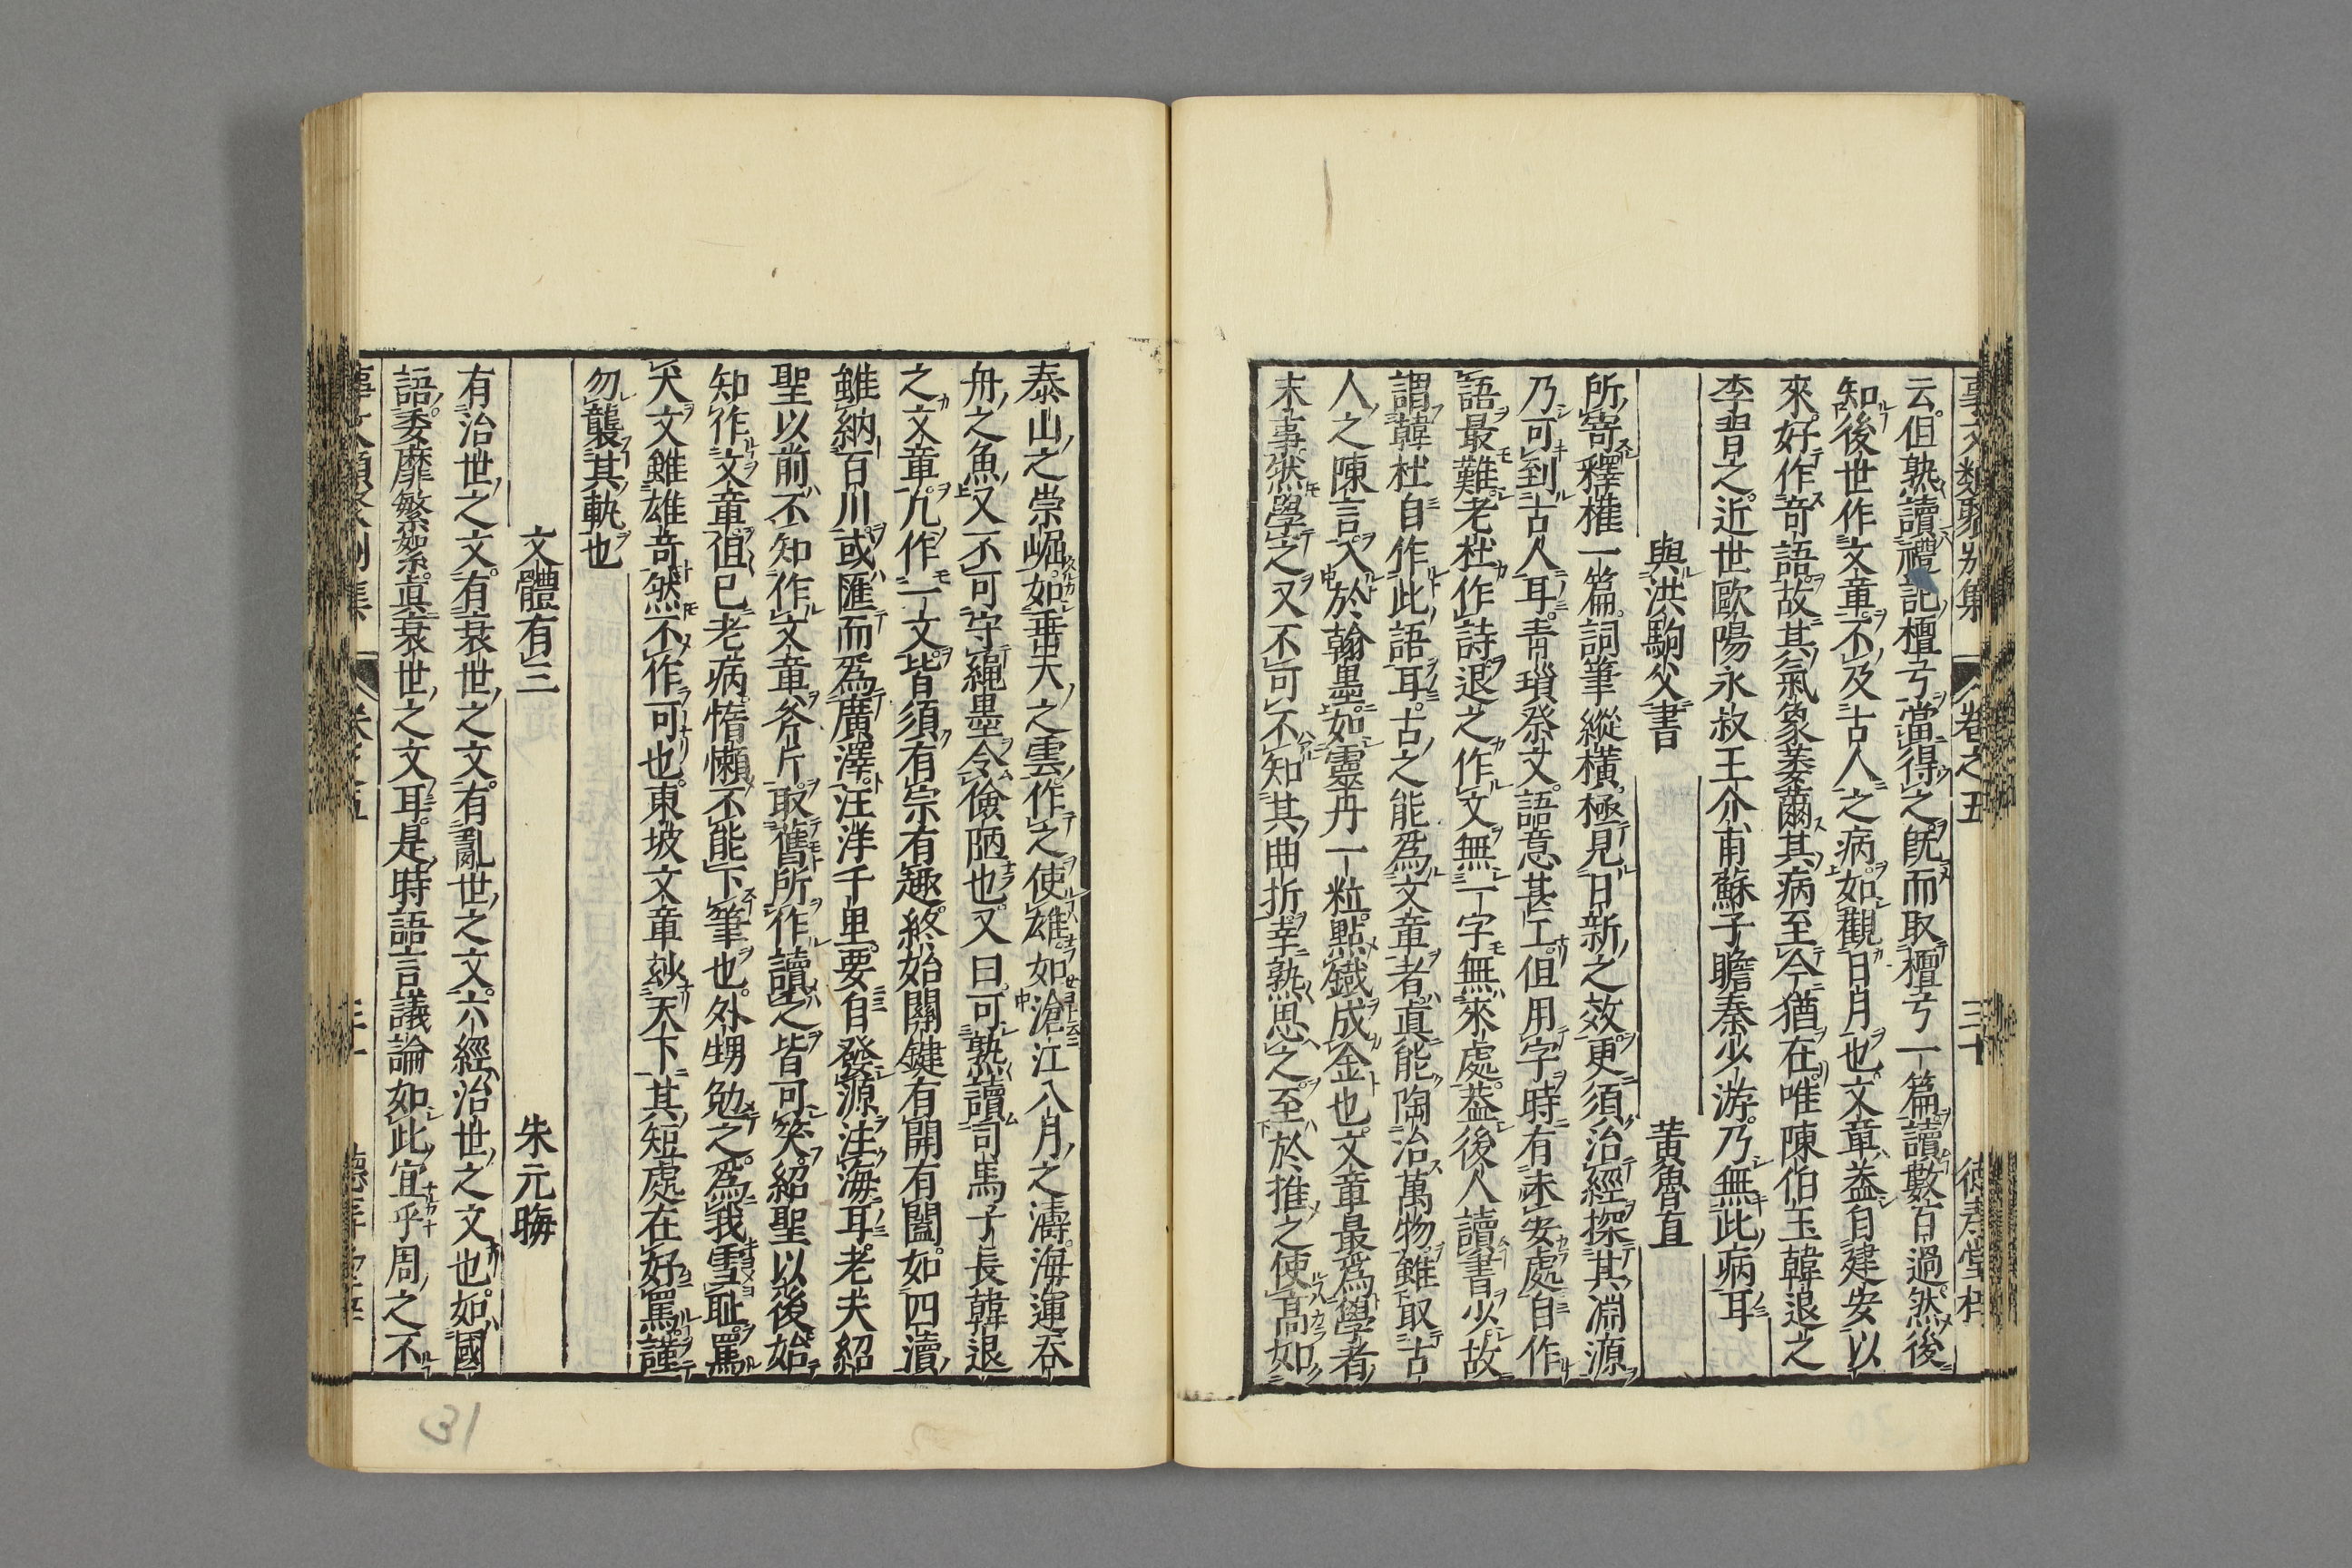 事文類聚別集 卷之五 三十
云但熟讀禮記檀弓當得之既而取檀弓一篇讀數百過然後
知後世作文章不及古人之病如觀日月也文章蓋自建安以
來好作奇語故其氣象萎薾其病至今猶在唯陳伯玉韓退之
李習之近世歐陽永叔王介甫蘇子瞻秦少游乃無此病耳
與洪駒父書 黃魯直
所寄釋權一篇詞筆縱橫極見日新之效更須治經探其淵源
乃可到古人耳青瑣祭文語意甚工但用字時有未安處自作
語最難老杜作詩退之作文無一字無來處蓋後人讀書少故
謂韓杜自作此語耳古之能爲文章者眞能陶冶萬物雖取古
人之陳言入於翰墨如靈丹一粒點鐵成金也文章最爲學者
末事然學之又不可不知其曲折幸熟思之至於推之使高如
泰山之崇崛如垂天之雲作之使雄如滄江八月之濤海運吞
舟之魚又不可守繩墨令儉陋也又曰可熟讀司馬子長韓退
之文章凡作一文皆須有宗有趣終始關鍵有開有闔如四瀆
雖納百川或匯而爲廣澤汪洋千里要自發源注海耳老夫紹
聖以前不知作文章斧斤取舊所作讀之皆可笑紹聖以後始
知作文章徂已老病惰懶不能下筆也外甥勉之爲我雪耻罵
犬文雖雄奇然不作可也東坡文章玅天下其短處在好罵謹
勿襲其軌也
文體有三 朱元晦
有治世之文有衰世之文有亂世之文六經治世之文也如國
語委靡繁絮眞衰世之文耳是時語言議論如此宜乎周之不